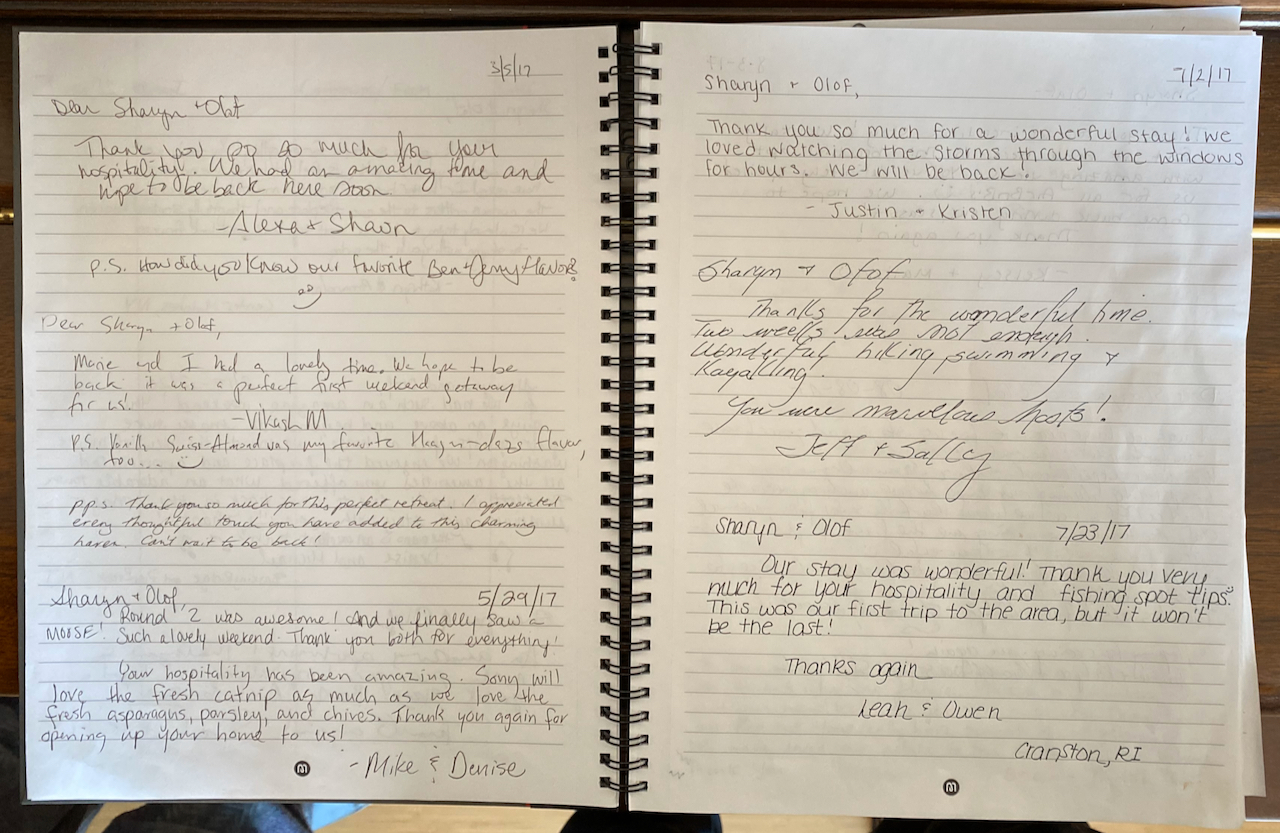 3/5/17
Dear Sharyn + Olof
Thank you so so much for your
hospitality! We had an amazing time and
hope to be back here soon
- Alexa + Shawn
P.S. How did you know our favorite Ben + Jerry flavor?
Dear Sharyn + Olof,
Marie and I had a lovely time. We hope to be
back it was a perfect first weekend getaway
for us!
- Vikash M
P.S. Vanilla Swiss-Almond was my favorite Haagen-dazs flavor,
too...
p.p.s. Thank you so much for this perfect retreat. I appreciated
every thoughtful touch you have added to this charming
haven. Can't wait to be back!
Sharyn + Olof, 5/29/17
Round 2 was awesome! And we finally saw a
MOOSE! Such a lovely weekend. Thank you both for everything!
Your hospitality has been amazing. Sony will
love the fresh catnip as much as we love the
fresh asparagus, parsley, and chives. Thank you again for
opening up your home to us!
- Mike & Denise
m
7/2/17
Sharyn + Olof,
Thank you so much for a wonderful stay! We
loved watching the storms through the windows
for hours. We will be back!
- Justin + Kristen
Sharyn + Olof
Thanks for the wonderful time.
Two weeks was not enough.
Wonderful hiking swimming +
Kayaking.
You were marvellous hosts!
Jeff + Sally
Sharyn & Olof 7/23/17
Our stay was wonderful! Thank you very
much for your hospitality and fishing spot tips!
This was our first trip to the area, but it won't
be the last!
Thanks again
Leah & Owen
Cranston, RI
m